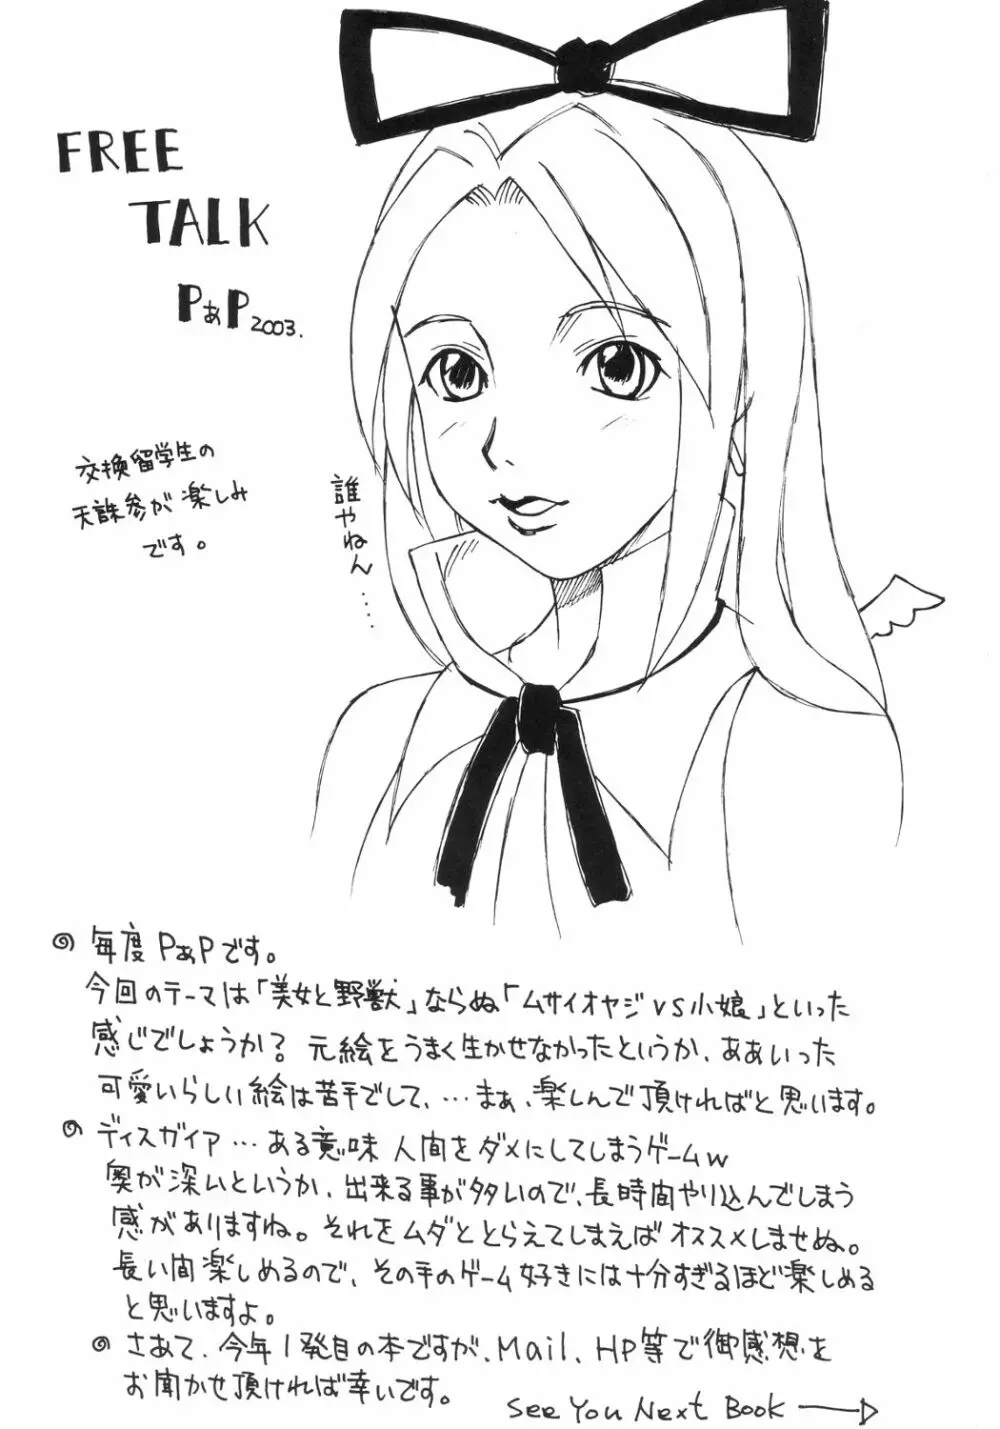 FREE
TALK
PあP 2003.
交換留学生の
天誅参が楽しみ
です。
誰やねん……
毎度PあPです。
今回のテーマは「美女と野獣」ならぬ「ムサイオヤジvs小娘」といった
感じでしょうか？元絵をうまく生かせなかったというか、ああいった
可愛いらしい絵は苦手でして、…まぁ、楽しんで頂ければと思います。
ディスガイア…ある意味人間をダメにしてしまうゲームw
奥が深いというか、出来る事が多いので、長時間やり込んでしまう
感がありますね。それをムダととらえてしまえばオススメしませぬ。
長い間楽しめるので、その手のゲーム好きには十分すぎるほど楽しめる
と思いますよ。
さあて、今年1発目の本ですが、Mail、HP等で御感想を
お聞かせ頂ければ幸いです。
See You Next Book